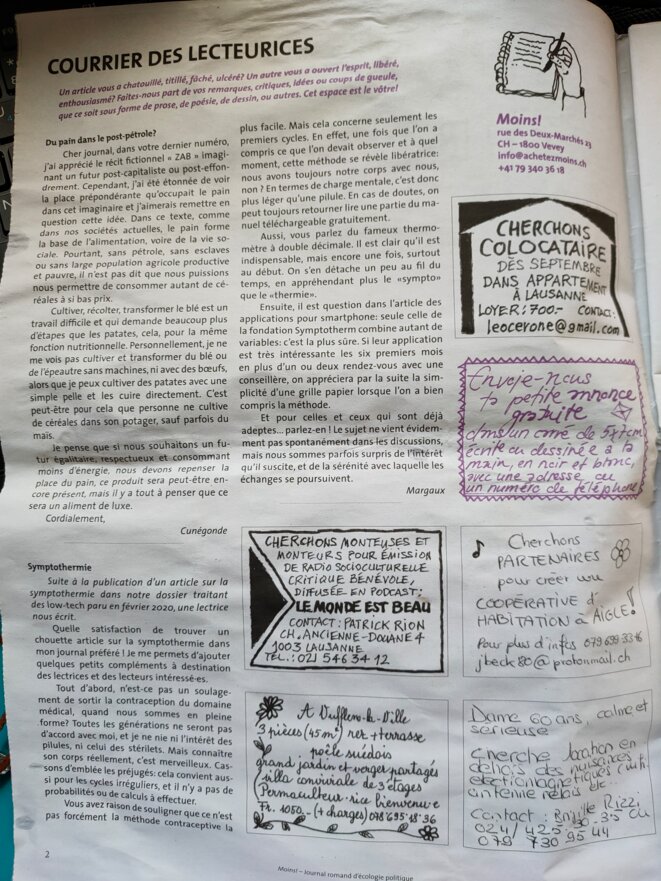 COURRIER DES LECTEURICES
Un article vous a chatouillé, titillé, fâché, ulcéré? Un autre vous a ouvert l'esprit, libéré,
enthousiasmé? Faites-nous part de vos remarques, critiques, idées ou coups de gueule,
que ce soit sous forme de prose, de poésie, de dessin, ou autres. Cet espace est le vôtre!
Du pain dans le post-pétrole?
Cher journal, dans votre dernier numéro,
j'ai apprécié le récit fictionnel « ZAB » imagi-
nant un futur post-capitaliste ou post-effon-
drement. Cependant, j'ai été étonnée de voir
la place prépondérante qu'occupait le pain
dans cet imaginaire et j'aimerais remettre en
question cette idée. Dans ce texte, comme
dans nos sociétés actuelles, le pain forme
la base de l'alimentation, voire de la vie so-
ciale. Pourtant, sans pétrole, sans esclaves
ou sans large population agricole productive
et pauvre, il n'est pas dit que nous puissions
nous permettre de consommer autant de cé-
réales à si bas prix.
Cultiver, récolter, transformer le blé est un
travail difficile et qui demande beaucoup plus
d'étapes que les patates, cela, pour la même
fonction nutritionnelle. Personnellement, je ne
me vois pas cultiver et transformer du blé ou
de l'épeautre sans machines, ni avec des bœufs,
alors que je peux cultiver des patates avec une
simple pelle et les cuire directement. C'est
peut-être pour cela que personne ne cultive
de céréales dans son potager, sauf parfois du
maïs.
Je pense que si nous souhaitons un fu-
tur égalitaire, respectueux et consommant
moins d'énergie, nous devons repenser la
place du pain, ce produit sera peut-être en-
core présent, mais il y a tout à penser que ce
sera un aliment de luxe.
Cordialement,
Cunégonde
Symptothermie
Suite à la publication d'un article sur la
symptothermie dans notre dossier traitant
des low-tech paru en février 2020, une lectrice
nous écrit.
Quelle satisfaction de trouver un
chouette article sur la symptothermie dans
mon journal préféré ! Je me permets d'ajouter
quelques petits compléments à destination
des lectrices et des lecteurs intéressé·es.
Tout d'abord, n'est-ce pas un soulage-
ment de sortir la contraception du domaine
médical, quand nous sommes en pleine
forme? Toutes les générations ne seront pas
d'accord avec moi, et je ne nie ni l'intérêt des
pilules, ni celui des stérilets. Mais connaître
son corps réellement, c'est merveilleux. Cas-
sons d'emblée les préjugés: cela convient aus-
si pour les cycles irréguliers, et il n'y a pas de
probabilités ou de calculs à effectuer.
Vous avez raison de souligner que ce n'est
pas forcément la méthode contraceptive la
plus facile. Mais cela concerne seulement les
premiers cycles. En effet, une fois que l'on a
compris ce que l'on devait observer et à quel
moment, cette méthode se révèle libératrice:
nous avons toujours notre corps avec nous,
non ? En termes de charge mentale, c'est donc
plus léger qu'une pilule. En cas de doutes, on
peut toujours retourner lire une partie du ma-
nuel téléchargeable gratuitement.
Aussi, vous parlez du fameux thermo-
mètre à double décimale. Il est clair qu'il est
indispensable, mais encore une fois, surtout
au début. On s'en détache un peu au fil du
temps, en appréhendant plus le «sympto»
que le «thermie».
Ensuite, il est question dans l'article des
applications pour smartphone: seule celle de
la fondation Symptotherm combine autant de
variables: c'est la plus sûre. Si leur application
est très intéressante les six premiers mois
en plus d'un ou deux rendez-vous avec une
conseillère, on appréciera par la suite la sim-
plicité d'une grille papier lorsque l'on a bien
compris la méthode.
Et pour celles et ceux qui sont déjà
adeptes... parlez-en ! Le sujet ne vient évidem-
ment pas spontanément dans les discussions,
mais nous sommes parfois surpris de l'intérêt
qu'il suscite, et de la sérénité avec laquelle les
échanges se poursuivent.
Margaux
Moins!
rue des Deux-Marchés 23
CH – 1800 Vevey
info@achetezmoins.ch
+41 79 340 36 18
CHERCHONS
COLOCATAIRE
DÈS SEPTEMBRE
DANS APPARTEMENT
À LAUSANNE
LOYER: 700.- CONTACT:
leocerone@gmail.com
Envoie-nous
ta petite annonce
gratuite
dans un carré de 5x7cm
écrite ou dessinée à la
main, en noir et blanc,
avec une adresse ou
un numéro de téléphone
CHERCHONS MONTEUSES ET
MONTEURS POUR ÉMISSION
DE RADIO SOCIOCULTURELLE
CRITIQUE BÉNÉVOLE,
DIFFUSÉE EN PODCAST:
LE MONDE EST BEAU
CONTACT: PATRICK RION
CH. ANCIENNE-DOUANE 4
1003 LAUSANNE
TEL.: 021 546 34 12
Cherchons
PARTENAIRES
pour créer une
COOPÉRATIVE d'
HABITATION à AIGLE!
Pour plus d'infos 079 699 33 16
jbeck80@protonmail.ch
A Vufflens-la-Ville
3 pièces (45m²) rez + terrasse
poêle suédois
grand jardin et verger partagés
villa conviviale de 3 étages
Permaculteur·rice bienvenu·e
Fr. 1050.- (+ charges) 078 695 18 36
Dame 60 ans, calme et
sérieuse
cherche location en
dehors des nuisances
électromagnétiques (wifi
antenne relais etc.
Contact: Rizzi
024/ 425 90-35 ou
079 730 95 44
2
Moins! – Journal romand d'écologie politique